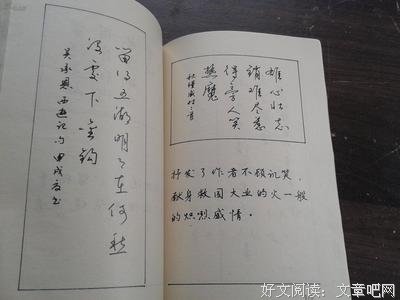 留得五湖明月在何愁
没处下金钩
吴承恩 西游记句 甲戌夏书
雄心壮志
销难尽惹
得旁人笑
热魔
秋瑾感时
抒发了作者不顾讥笑，
献身救国大业的火一般
的炽烈感情。
好文阅读：文章吧网